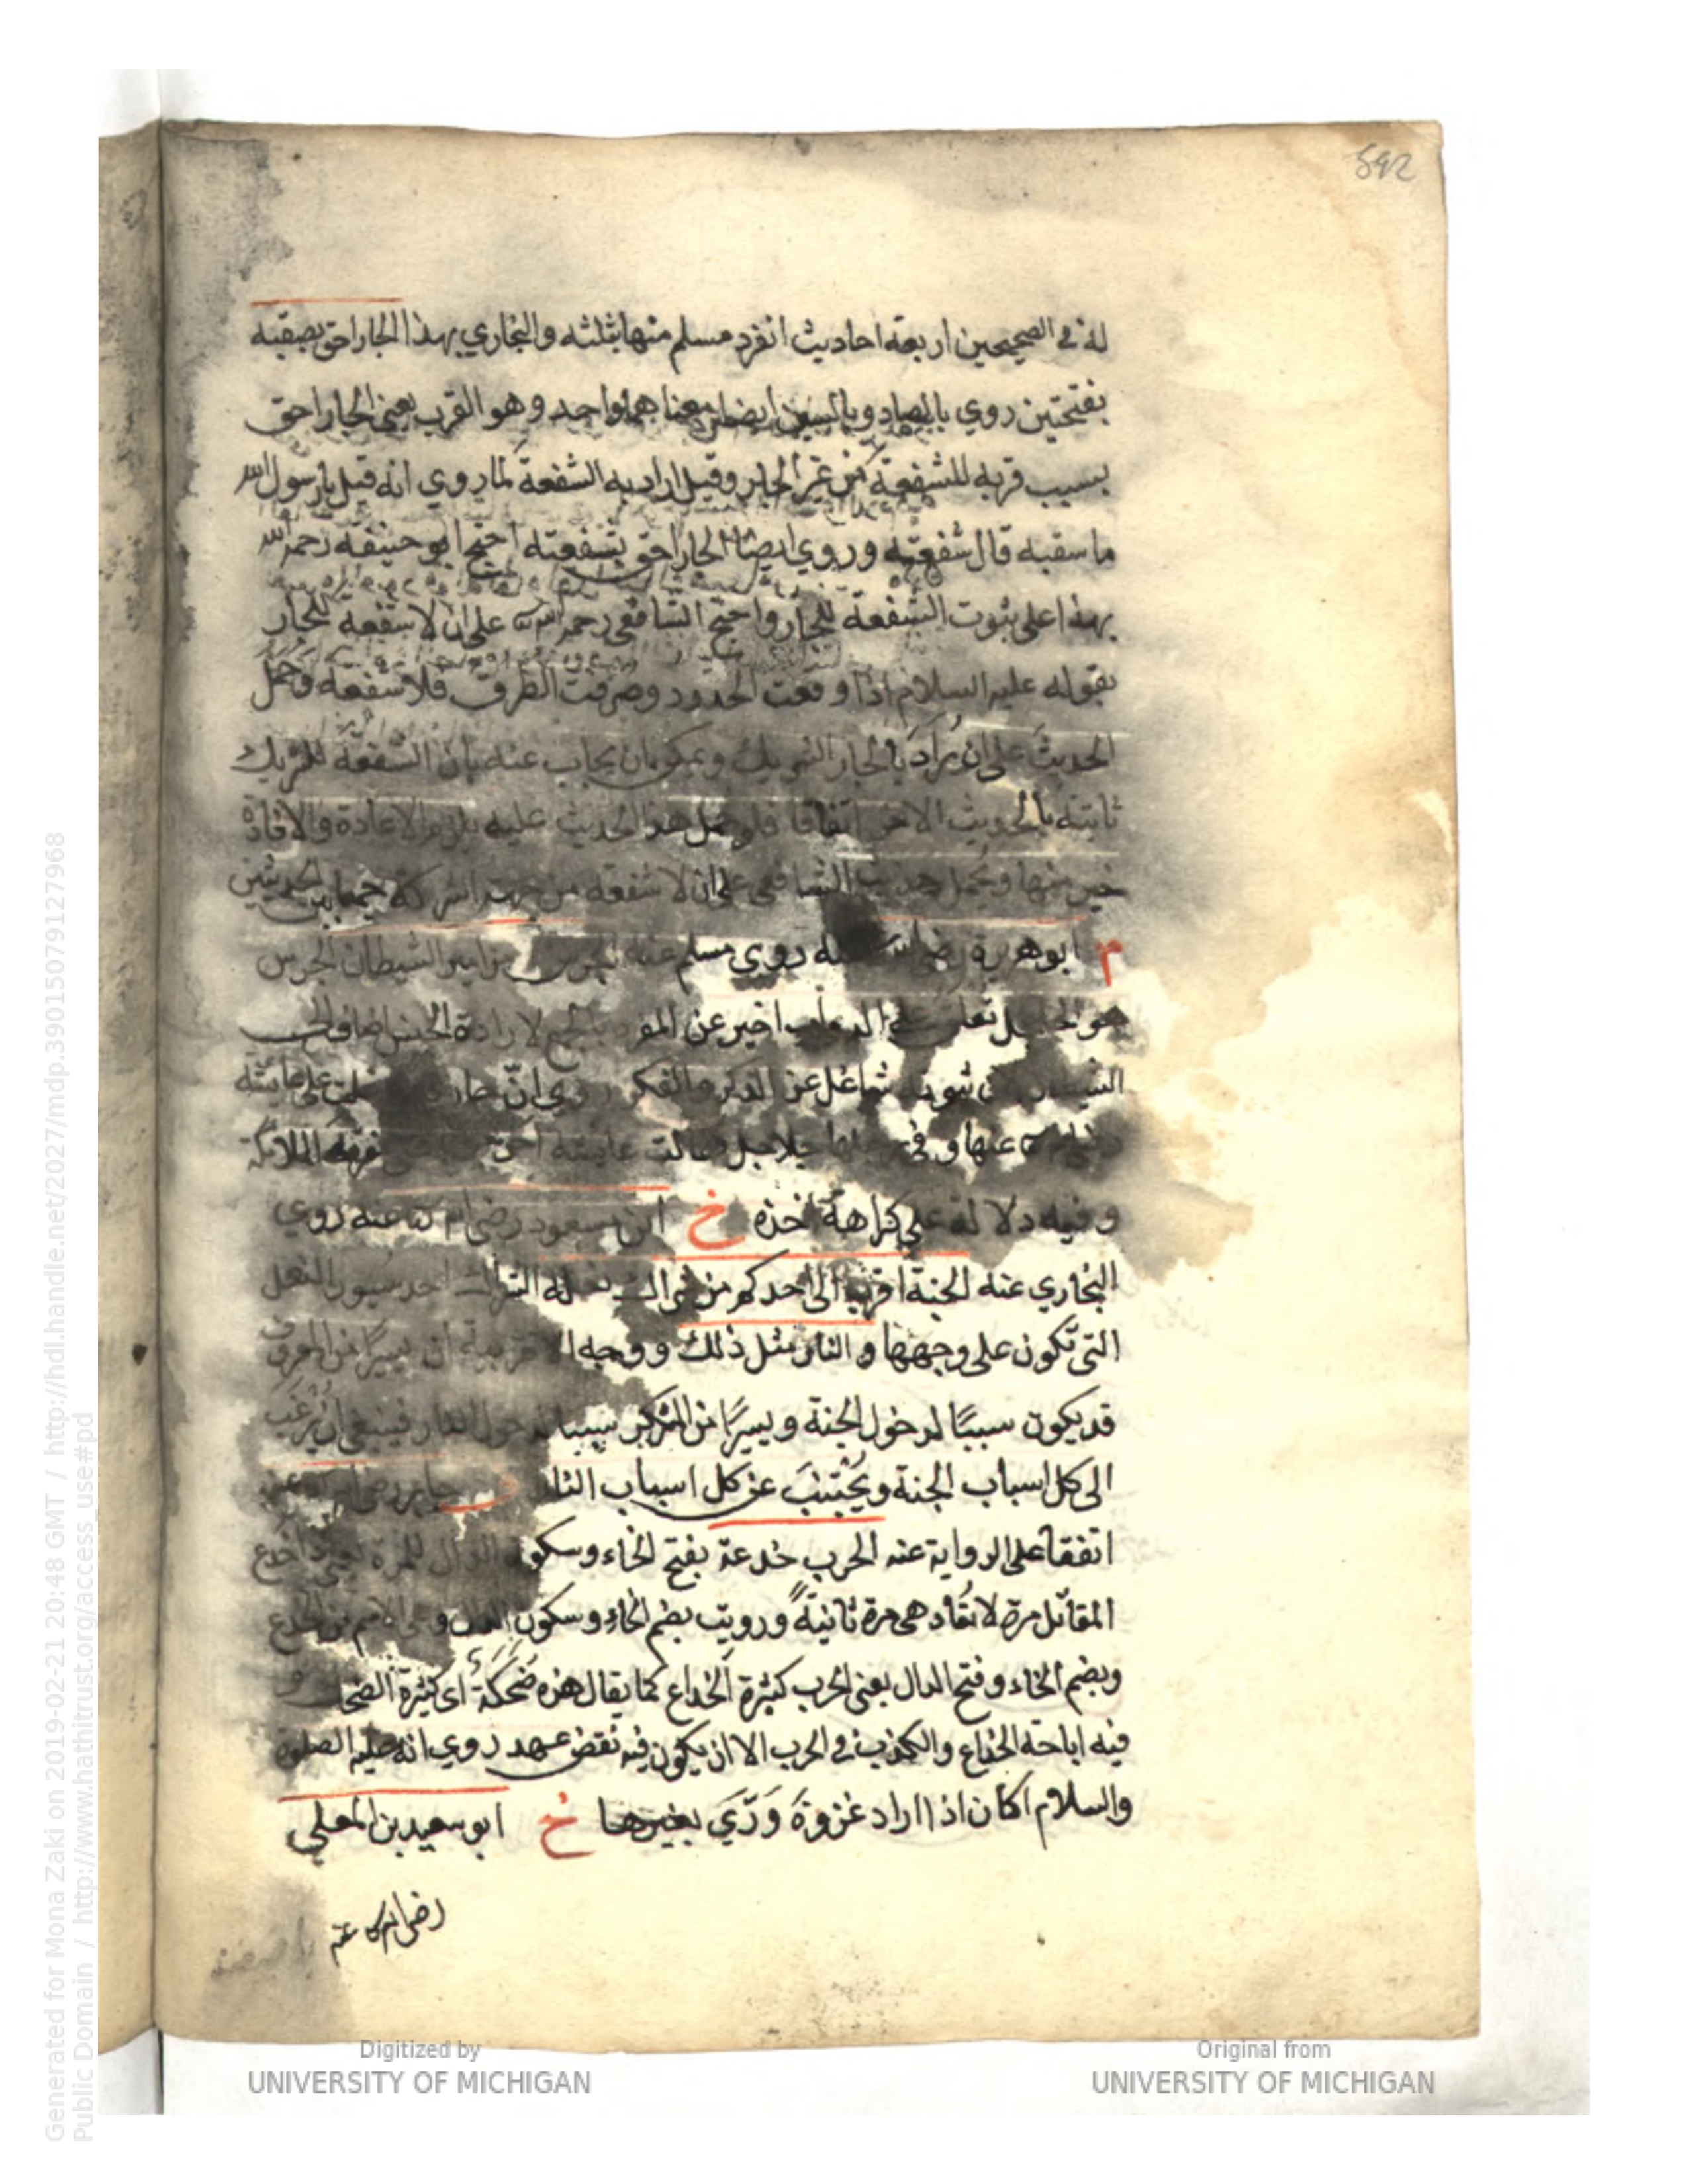 592
له في الصحيحين اربعة احاديث انفرد مسلم منها بثلثه والبخاري بهذا الجار احق بصقبه
بفتحتين روي بالصاد وبالسين ايضا ومعناهما واحد وهو القرب يعني الجار احق
بسبب قربه للشفعة من غير الجار وقيل اراد به الشفعة لما روي انه قيل يا رسول الله
ما سقبه قال شفعته وروي ايضا الجار احق بشفعته احتج ابو حنيفه رحمه الله
بهذا على ثبوت الشفعة للجار واحتج الشافعي رحمه الله على ان لا شفعه للجار
بقوله عليه السلام اذا وقعت الحدود وصرفت الطرق فلا شفعه وحمل
الحديث على ان يراد بالجار الشريك ويمكن ان يجاب عنه بان الشفعة للشريك
ثابتة بالحديث الاخر اتفاقا فلو حمل هذا الحديث عليه يلزم الاعادة والافادة
خير منها ويحمل حديث الشافعي على ان لا شفعه من جهة الشركة جمعا بين الحديثين
م ابو هريرة رضي الله عنه روي مسلم عنه الجرس مزامير الشيطان الجرس
هو تعلق على الدواب اخبر عن المفرد بالجمع لارادة الجنس اضاف
الشيطان شاغل عن الذكر والفكر روي ان على عايشة
عنها وفي جلاجل فقالت عايشة الملائكة
وفيه دلالة على كراهة اخذه خ ابن مسعود رضي الله عنه روي
البخاري عنه الجنة اقرب الى احدكم من شراك نعله الشراك احد سيور النعل
التي تكون على وجهها والنار مثل ذلك ووجه الاقربية ان يسيرا من
قد يكون سببًا لدخول الجنة ويسيرًا من المنكر سببا لدخول النار فينبغي ان يرغب
الى كل اسباب الجنة ويجتنب عن كل اسباب النار جابر رضي الله عنه
اتفقا على الرواية عنه الحرب خدعة بفتح الخاء وسكون الدال للمرة يعني اذا خدع
المقاتل مرة لا تعاد هي مرة ثانيةً ورويت بضم الخاء وسكون الدال وهي الاسم من الخدع
وبضم الخاء وفتح الدال يعني الحرب كثيرة الخداع كما يقال هذه ضحكة اي كثيرة الضحك
فيه اباحة الخداع والكذب في الحرب الا ان يكون فيه نقض عهد روي انه عليه الصلوة
والسلام كان اذا اراد غزوة ورّي بغيرها خ ابو سعيد بن المعلي
رضي الله عنه
Digitized by
UNIVERSITY OF MICHIGAN
Original from
UNIVERSITY OF MICHIGAN
Generated for Mona Zaki on 2019-02-21 20:48 GMT / http://hdl.handle.net/2027/mdp.39015079127968
Public Domain / http://www.hathitrust.org/access_use#pd